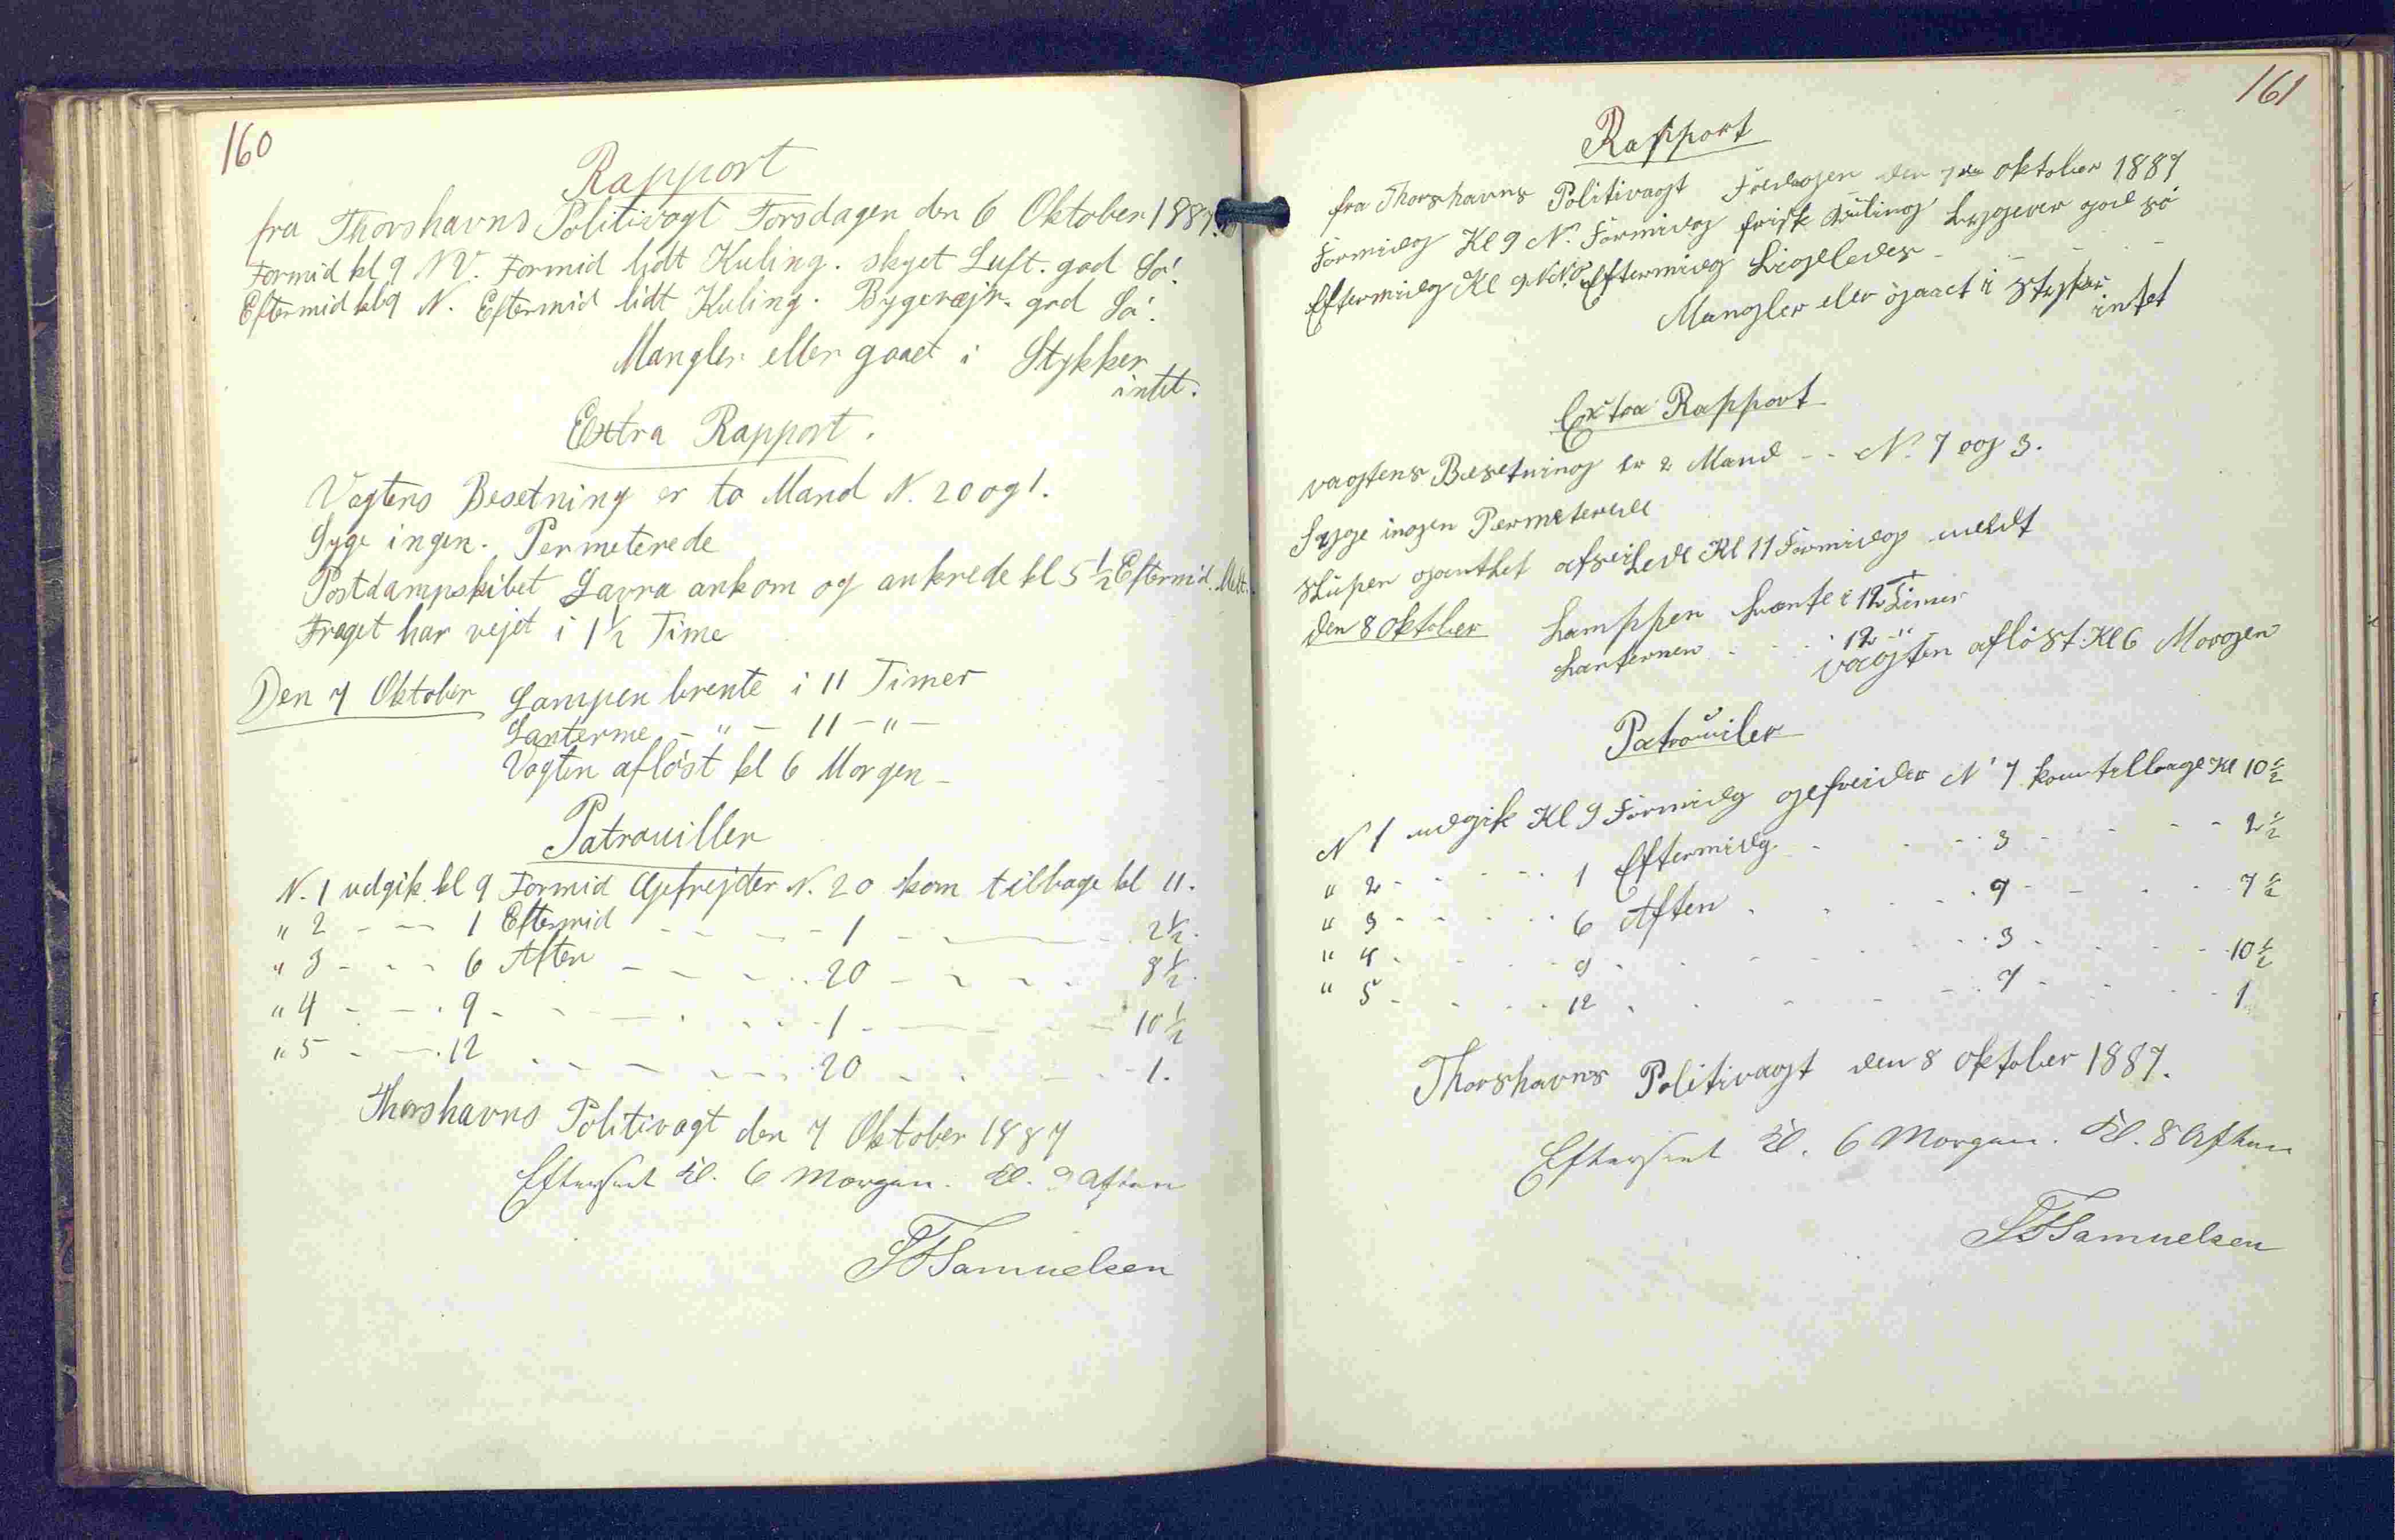 160
Rapport
fra Thorshavns Politivagt Torsdagen den 6 Oktober 1887.
Formid kl 9 N V. Formid lidt Kuling. skyet Luft. god Sö.
Eftermid kl 9 N. Eftermid lidt Kuling. Bygevejr. god Sö.
Mangler eller gaaet i Stykker
intet.
Extra Rapport.
Vagtens Besetning er to Mand N. 20 og 1.
Syge ingen. Permeterede
Postdampskibet Lavra ankom og ankrede kl 5 1/2 Eftermid. Meldt.
Flaget har vejet i 1 1/2 Time
Den 7 Oktober Lampen brente i 11 Timer
Lanterme - " - 11 - " -
Vagten aflöst kl 6 Morgen -
Patrouiller
N. 1 udgik kl 9 Formid Gefrejder N. 20 kom tilbage kl 11.
" 2 - - - 1 Eftermid - - - - 1 - - - 2 1/2.
" 3 - - - 6 Aften - - - - 20 - - - - 8 1/2.
" 4 - - - 9 - - - - - - 1 - - - - 10 1/2
" 5 - - - 12 - - - - - 20 - - - - 1.
Thorshavns Politivagt den 7 Oktober 1887
Efterseet Kl. 6 Morgen. Kl. 9 Aften
Samuelsen
161
Rapport
fra Thorshavns Politivagt Fredagen den 7de Oktober 1887
Formidg Kl 9 N. Formidg frisk Kuling Byge god sö
Eftermidg Kl 9 N.N.O. Eftermidg Ligeledes - - -
Mangler eller gaaet i Stykker
intet
Extra Rapport
vagtens Besetning er 2 Mand - - N. 7 og 3.
Syge ingen Permeterede
Slupen afseilede Kl 11 Formidg meldt
den 8 Oktober Lamppen brente i 12 Timer
Lanternen - - - 12 - " -
vagten aflöst Kl 6 Morgen
Patrouiler
N 1 udgik Kl 9 Formidg gefreider N 7 kom tilbage Kl 10 1/2
" 2 - - - - 1 Eftermidg - - - - 3 - - - - 2 1/2
" 3 - - - - 6 Aften - - - - 7 - - - - 7 1/2
" 4 - - - - 9 - - - - - 3 - - - - 10 1/2
" 5 - - - - 12 - - - - - 7 - - - - 1
Thorshavns Politivagt den 8 Oktober 1887.
Efterseet Kl. 6 Morgen. Kl. 8 Aften
Samuelsen